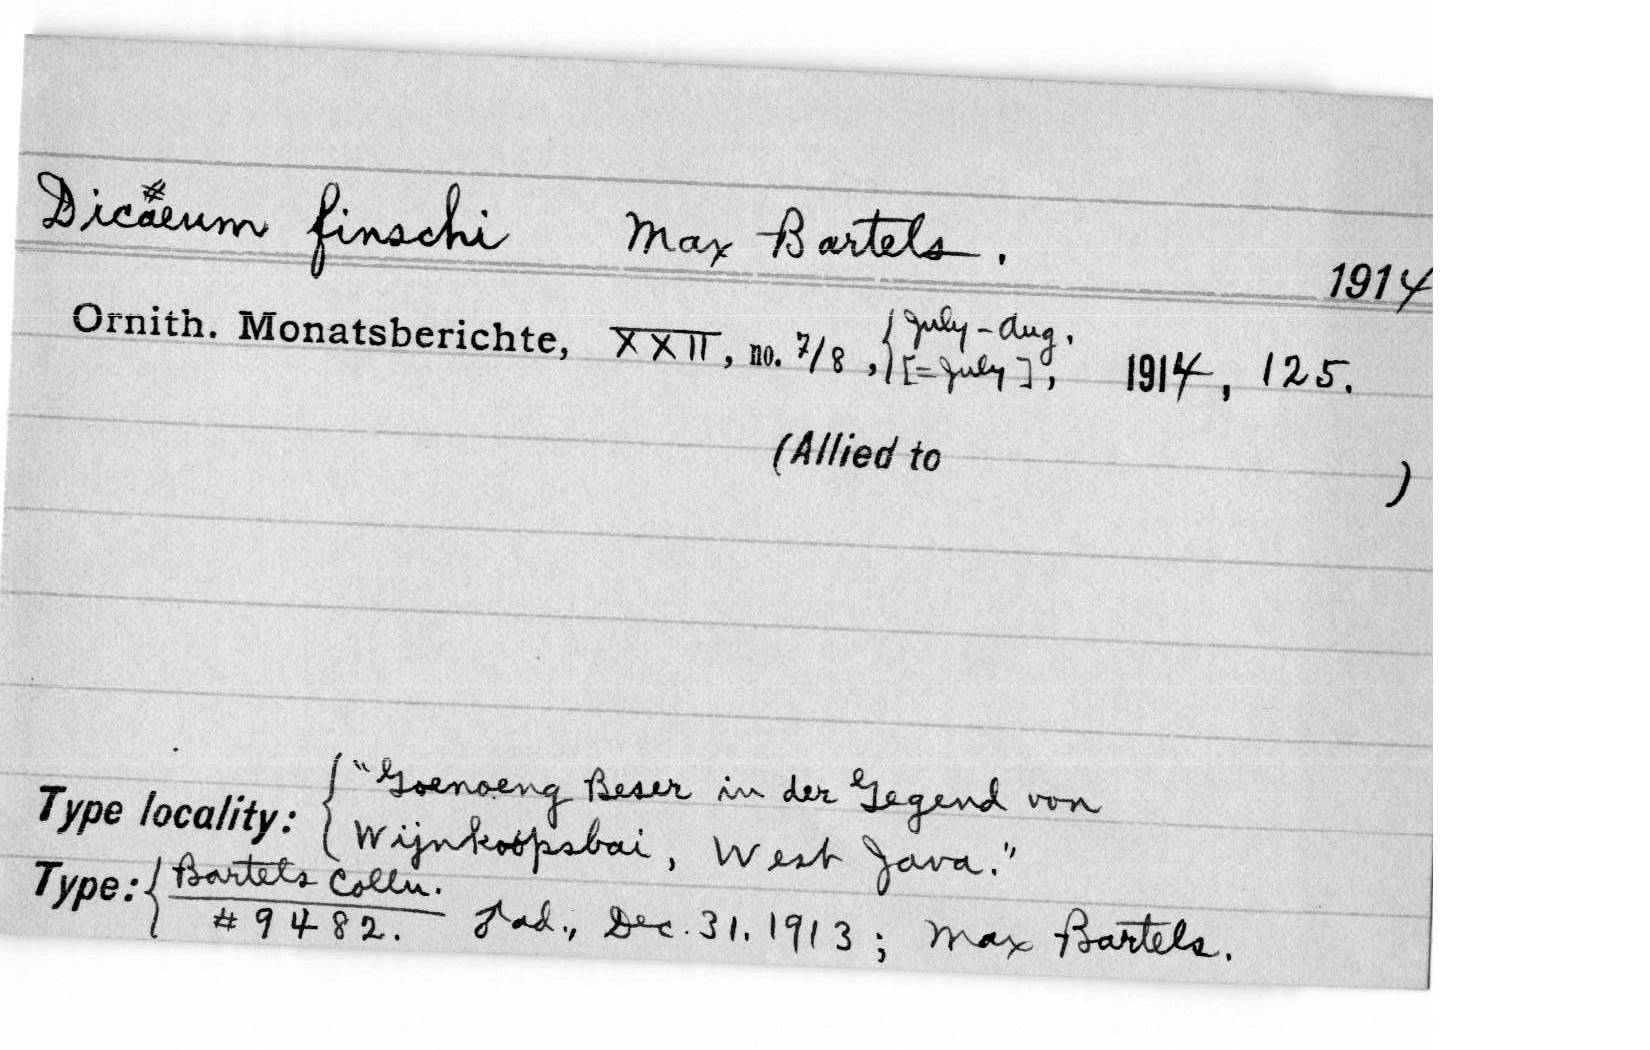 Dicaeum finschi Max Bartels.
1914
Ornith. Monatsberichte, XXII, no. 7/8, { July-Aug. [=July], 1914, 125.
(Allied to )
Type locality: { "Goenoeng Beser in der Gegend von
Wijnkoopsbai, West Java."
Type: { Bartels Colln.
#9482. ad., Dec. 31. 1913; Max Bartels.